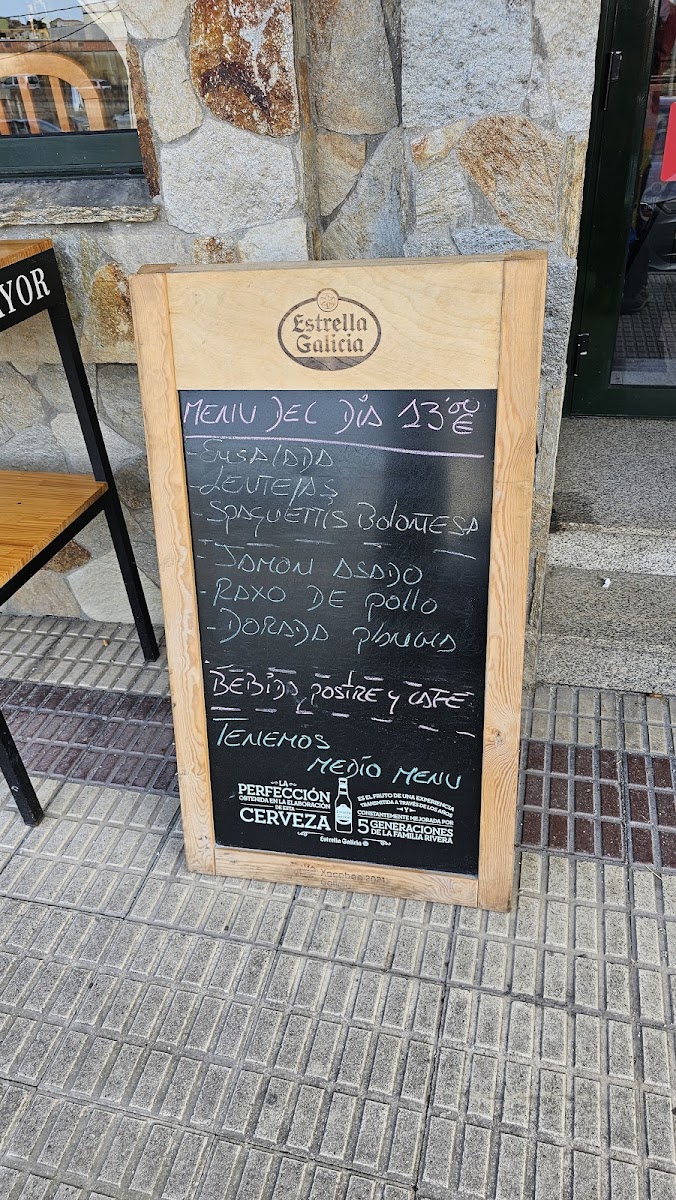 YOR
Estrella
Galicia
MENU DEL DIA 13'00 €
- ENSALADA
- LENTEJAS
- SPAGUETTIS BOLOÑESA
- JAMON ASADO
- RAXO DE POLLO
- DORADA PLANCHA
BEBIDA, POSTRE Y CAFE
TENEMOS
MEDIO MENU
LA
PERFECCIÓN
OBTENIDA EN LA ELABORACIÓN
DE ESTA
CERVEZA
ES EL FRUTO DE UNA EXPERIENCIA
TRANSMITIDA A TRAVÉS DE LOS AÑOS
Y
CONSTANTEMENTE MEJORADA POR
5 GENERACIONES
DE LA FAMILIA RIVERA
Estrella Galicia
Xacobeo 2021
Galicia